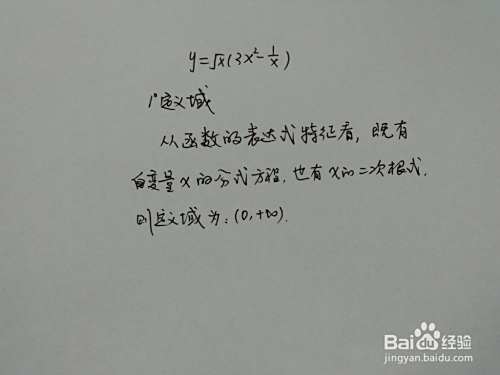 y=√x(3x²-1/x)
1°定义域
从函数的表达式特征看，既有
自变量x的分式方程，也有x的二次根式，
则定义域为：(0,+∞).
Bai du 经验
jingyan.baidu.com